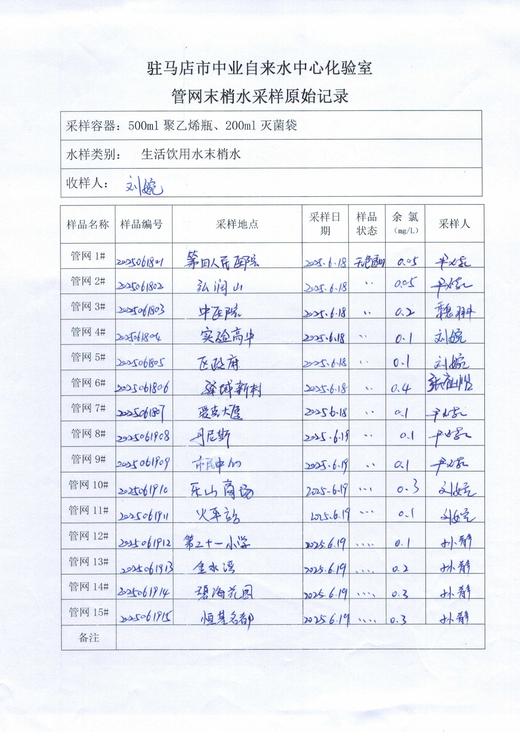 驻马店市中业自来水中心化验室
管网末梢水采样原始记录
采样容器：500ml 聚乙烯瓶、200ml 灭菌袋
水样类别： 生活饮用水末梢水
收样人： 刘婉
样品名称 样品编号 采样地点 采样日期 样品状态 余氯(mg/L) 采样人
管网 1# 2025061801 第四人民医院 2025.6.18 0.05
管网 2# 2025061802 弘润山 2025.6.18 〃 0.05
管网 3# 2025061803 中医院 2025.6.18 〃 0.2
管网 4# 2025061804 实验高中 2025.6.18 〃 0.1 刘婉
管网 5# 2025061805 区政府 2025.6.18 〃 0.1 刘婉
管网 6# 2025061806 驿城新村 2025.6.18 〃 0.4
管网 7# 2025061807 2025.6.18 〃 0.1
管网 8# 2025061908 丹尼斯 2025.6.19 〃 0.1
管网 9# 2025061909 市民中心 2025.6.19 〃 0.1
管网 10# 2025061910 乐山商场 2025.6.19 〃 0.3 刘婉
管网 11# 2025061911 火车站 2025.6.19 〃 0.1 刘婉
管网 12# 2025061912 第二十一小学 2025.6.19 〃 0.1 孙静
管网 13# 2025061913 2025.6.19 〃 0.2 孙静
管网 14# 2025061914 碧海花园 2025.6.19 〃 0.3 孙静
管网 15# 2025061915 恒基名都 2025.6.19 〃 0.3 孙静
备注